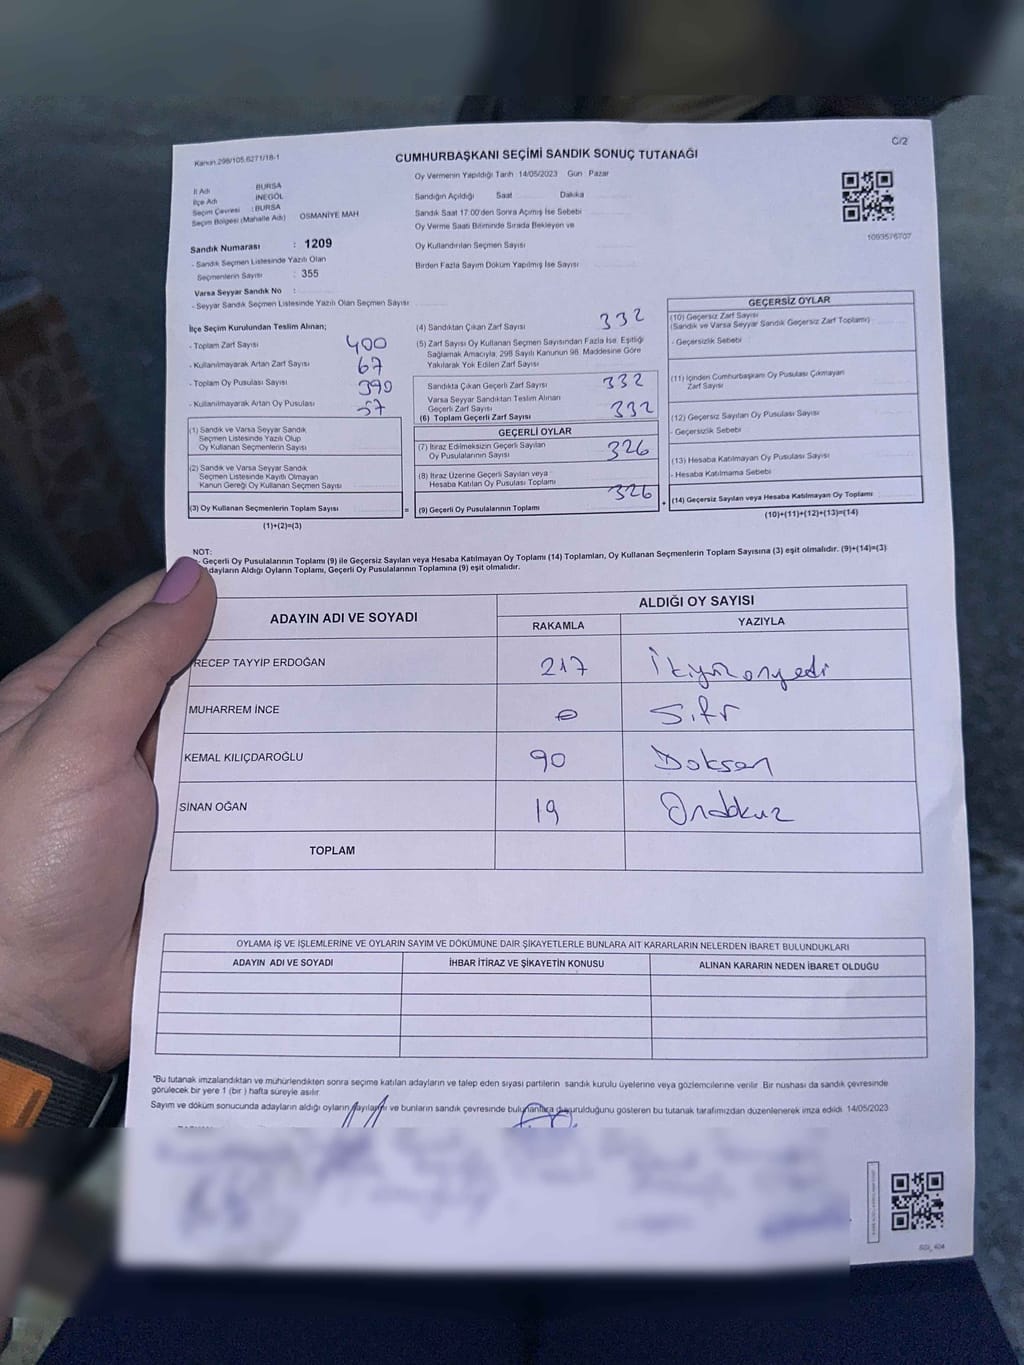 C/2
Kanun 298/105,6271/18-1
CUMHURBAŞKANI SEÇİMİ SANDIK SONUÇ TUTANAĞI
Oy Vermenin Yapıldığı Tarih 14/05/2023 Gün : Pazar
İl Adı BURSA
İlçe Adı İNEGÖL
Seçim Çevresi : BURSA
Seçim Bölgesi (Mahalle Adı) OSMANİYE MAH
Sandığın Açıldığı Saat Dakika
Sandık Saat 17:00'den Sonra Açımış İse Sebebi
Oy Verme Saati Bitiminde Sırada Bekleyen ve
Oy Kullandırılan Seçmen Sayısı
Birden Fazla Sayım Döküm Yapılmış İse Sayısı
1093576707
Sandık Numarası : 1209
- Sandık Seçmen Listesinde Yazılı Olan
Seçmenlerin Sayısı : 355
Varsa Seyyar Sandık No :
- Seyyar Sandık Seçmen Listesinde Yazılı Olan Seçmen Sayısı
İlçe Seçim Kurulundan Teslim Alınan;
- Toplam Zarf Sayısı 400
- Kullanılmayarak Artan Zarf Sayısı 67
- Toplam Oy Pusulası Sayısı 390
- Kullanılmayarak Artan Oy Pusulası 57
(1) Sandık ve Varsa Seyyar Sandık
Seçmen Listesinde Yazılı Olup
Oy Kullanan Seçmenlerin Sayısı
(2) Sandık ve Varsa Seyyar Sandık
Seçmen Listesinde Kayıtlı Olmayan
Kanun Gereği Oy Kullanan Seçmen Sayısı
(3) Oy Kullanan Seçmenlerin Toplam Sayısı
(1)+(2)=(3)
(4) Sandıktan Çıkan Zarf Sayısı 332
(5) Zarf Sayısı Oy Kullanan Seçmen Sayısından Fazla İse, Eşitliği
Sağlamak Amacıyla, 298 Sayılı Kanunun 98. Maddesine Göre
Yakılarak Yok Edilen Zarf Sayısı
Sandıkta Çıkan Geçerli Zarf Sayısı 332
Varsa Seyyar Sandıktan Teslim Alınan
Geçerli Zarf Sayısı
(6) Toplam Geçerli Zarf Sayısı 332
GEÇERLİ OYLAR
(7) İtiraz Edilmeksizin Geçerli Sayılan
Oy Pusulalarının Sayısı 326
(8) İtiraz Üzerine Geçerli Sayılan veya
Hesaba Katılan Oy Pusulası Toplamı
(9) Geçerli Oy Pusulalarının Toplamı 326
=
+
GEÇERSİZ OYLAR
(10) Geçersiz Zarf Sayısı
(Sandık ve Varsa Seyyar Sandık Geçersiz Zarf Toplamı)
- Geçersizlik Sebebi
(11) İçinden Cumhurbaşkanı Oy Pusulası Çıkmayan
Zarf Sayısı
(12) Geçersiz Sayılan Oy Pusulası Sayısı
- Geçersizlik Sebebi
(13) Hesaba Katılmayan Oy Pusulası Sayısı
- Hesaba Katılmama Sebebi
(14) Geçersiz Sayılan veya Hesaba Katılmayan Oy Toplamı
(10)+(11)+(12)+(13)=(14)
NOT:
- Geçerli Oy Pusulalarının Toplamı (9) ile Geçersiz Sayılan veya Hesaba Katılmayan Oy Toplamı (14) Toplamları, Oy Kullanan Seçmenlerin Toplam Sayısına (3) eşit olmalıdır. (9)+(14)=(3)
Adayların Aldığı Oyların Toplamı, Geçerli Oy Pusulalarının Toplamına (9) eşit olmalıdır.
ADAYIN ADI VE SOYADI ALDIĞI OY SAYISI
RAKAMLA YAZIYLA
RECEP TAYYİP ERDOĞAN 217 İkiyüzonyedi
MUHARREM İNCE 0 Sıfır
KEMAL KILIÇDAROĞLU 90 Doksan
SİNAN OĞAN 19 Ondokuz
TOPLAM
OYLAMA İŞ VE İŞLEMLERİNE VE OYLARIN SAYIM VE DÖKÜMÜNE DAİR ŞİKAYETLERLE BUNLARA AİT KARARLARIN NELERDEN İBARET BULUNDUKLARI
ADAYIN ADI VE SOYADI İHBAR İTİRAZ VE ŞİKAYETİN KONUSU ALINAN KARARIN NEDEN İBARET OLDUĞU
*Bu tutanak imzalandıktan ve mühürlendikten sonra seçime katılan adayların ve talep eden siyasi partilerin sandık kurulu üyelerine veya gözlemcilerine verilir. Bir nüshası da sandık çevresinde
görülecek bir yere 1 (bir ) hafta süreyle asılır.
Sayım ve döküm sonucunda adayların aldığı oyların sayılarını ve bunların sandık çevresinde bulunanlara duyurulduğunu gösteren bu tutanak tarafımızdan düzenlenerek imza edildi 14/05/2023